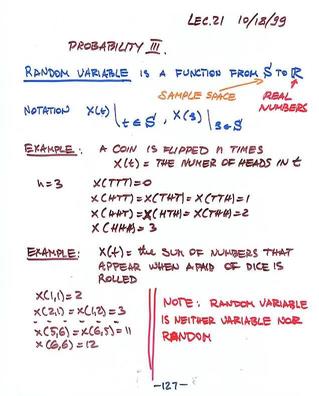 LEC. 21 10/18/99
PROBABILITY III.
RANDOM VARIABLE IS A FUNCTION FROM S TO R
SAMPLE SPACE REAL
NUMBERS
NOTATION X(t)|t∈S, X(s)|s∈S
EXAMPLE: A COIN IS FLIPPED n TIMES
X(t) = THE NUMER OF HEADS IN t
n=3 X(TTT)=0
X(HTT)=X(THT)=X(TTH)=1
X(HHT)=X(HTH)=X(THH)=2
X(HHH)=3
EXAMPLE: X(t)= the SUM OF NUMBERS THAT
APPEAR WHEN A PAIR OF DICE IS
ROLLED
X(1,1)=2
X(2,1)=X(1,2)=3
X(5,6)=X(6,5)=11
X(6,6)=12
NOTE: RANDOM VARIABLE
IS NEITHER VARIABLE NOR
RANDOM
-127-